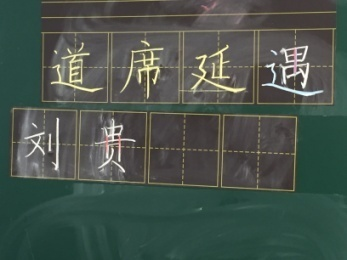 道席延遇
刘贵